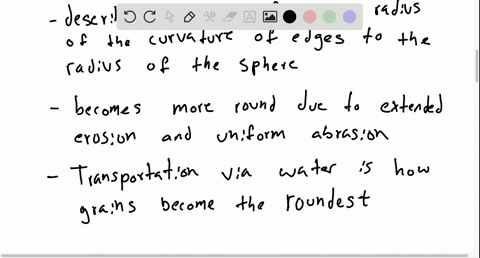 - descri radius
of the curvature of edges to the
radius of the sphere
- becomes more round due to extended
erosion and uniform abrasion
- Transportation via water is how
grains become the roundest